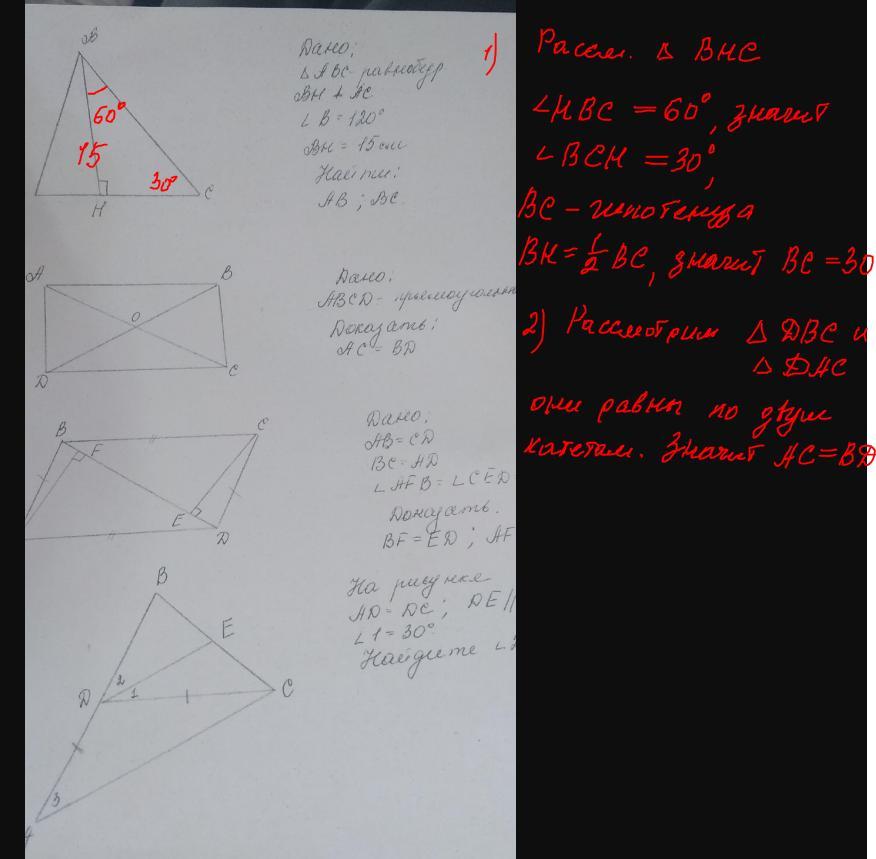 B
60°
15
30°
H
C
Дано:
△ ABC - равнобедр
BH ⊥ AC
∠ B = 120°
BH = 15 см
Найти:
AB ; BC.
1) Рассм. △ BHC
∠HBC = 60°, значит
∠ BCH = 30°,
BC - гипотенуза
BH = 1/2 BC, значит BC = 30
A
B
O
D
C
Дано:
ABCD -
Доказать:
AC = BD
2) Рассмотрим △ DBC и
△ DAC
они равны по двум
катетам. Значит AC = BD
B
F
C
E
D
Дано:
AB = CD
BC = AD
∠ AFB = ∠ CED
Доказать.
BF = ED ; AF
B
E
2
D
1
C
3
На рисунке
AD = DC ; DE ||
∠ 1 = 30°
Найдите ∠